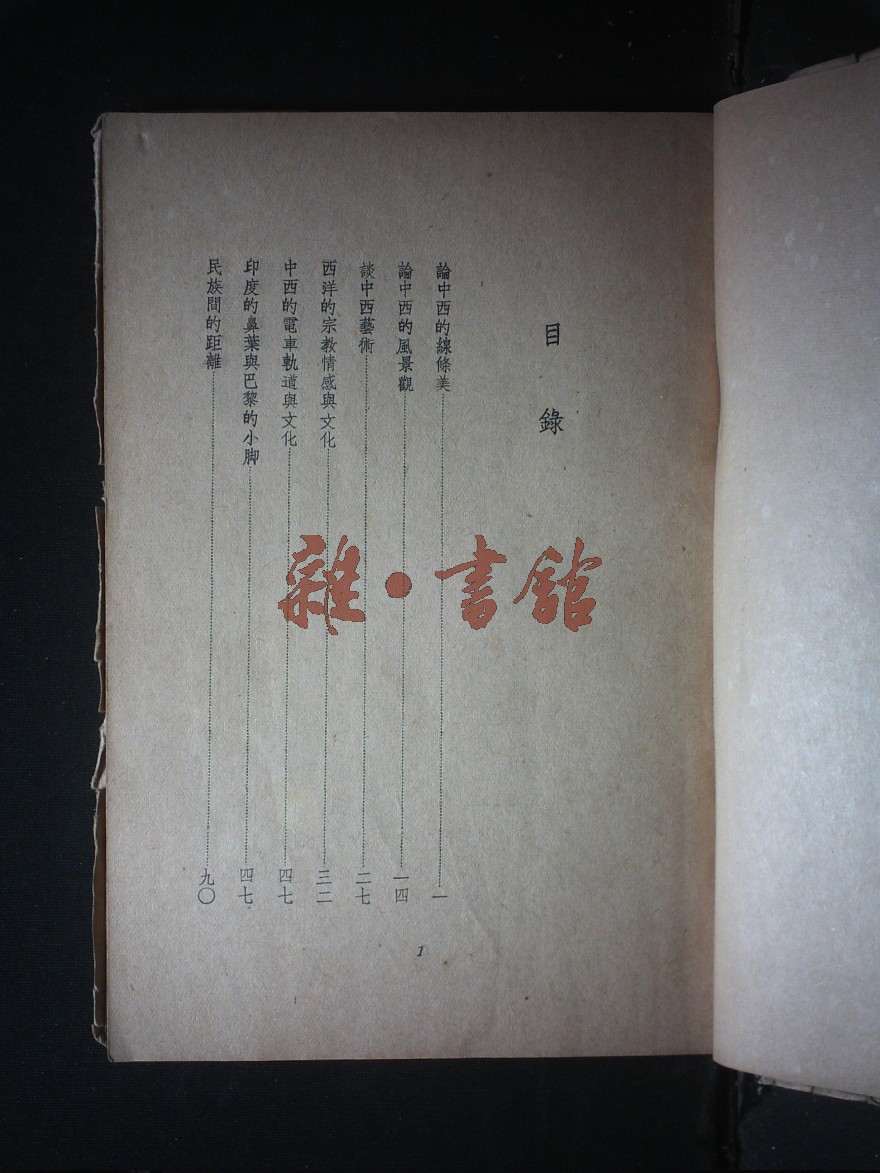 目錄
論中西的線條美……一
論中西的風景觀……一四
談中西藝術……二七
西洋的宗教情感與文化……三二
中西的電車軌道與文化……四七
印度的鼻葉與巴黎的小脚……四七
民族間的距離……九〇
1
雜·書館